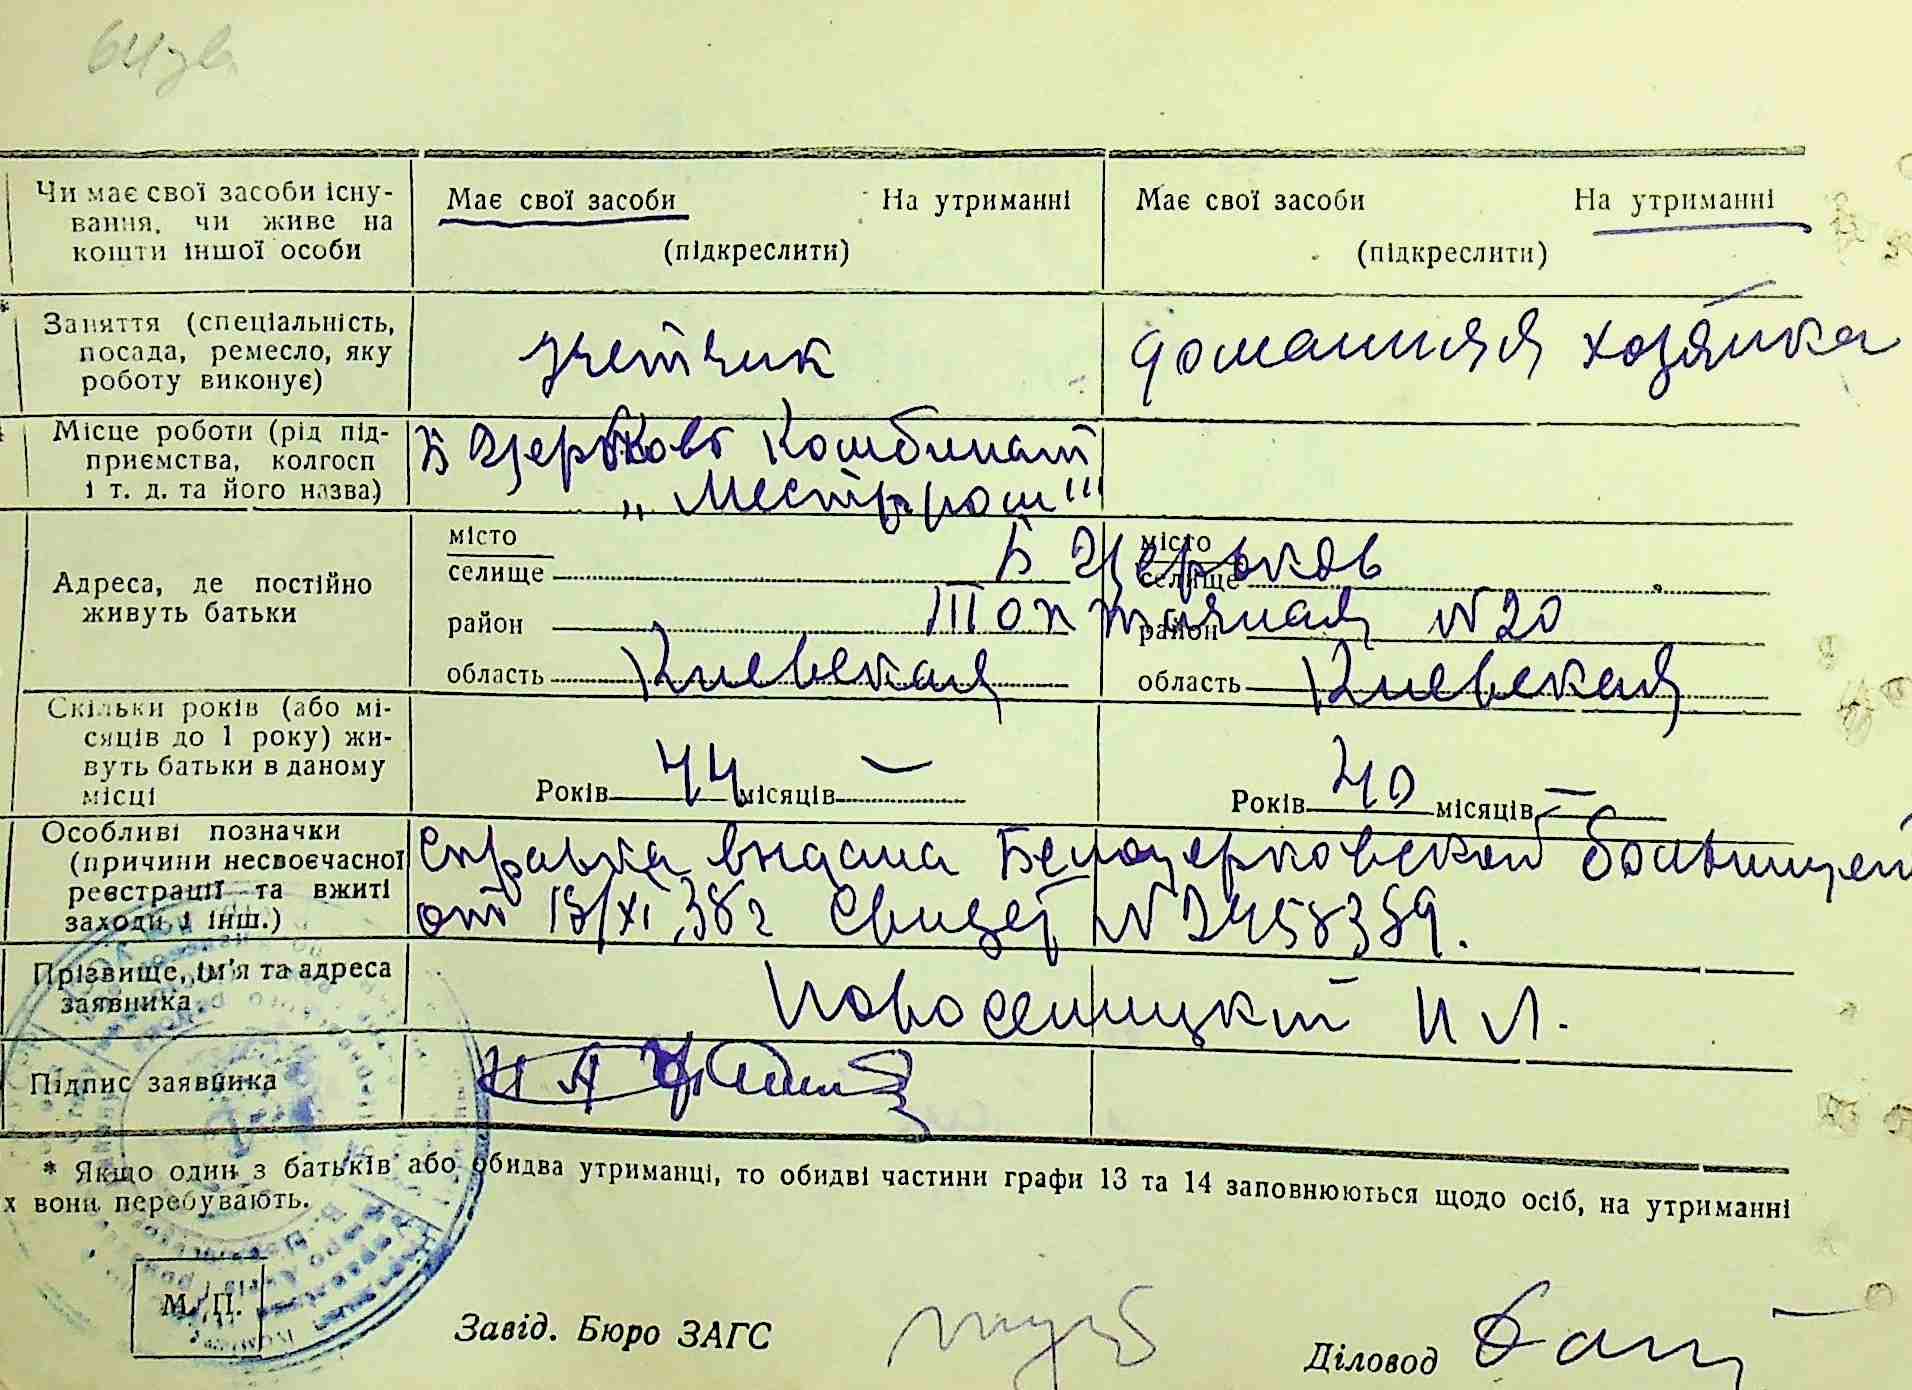 Чи має свої засоби існу-
вання, чи живе на
кошти іншої особи
Має свої засоби На утриманні
(підкреслити)
Має свої засоби На утриманні
(підкреслити)
Заняття (спеціальність,
посада, ремесло, яку
роботу виконує)
учетчик
домашняя хозяйка
Місце роботи (рід під-
приємства, колгосп
і т. д. та його назва)
Б Церьков Комбинат
„Местпром"
Адреса, де постійно
живуть батьки
місто
селище
район
область Киевская
місто
селище
Б Церьков
район
№ 20
область Киевская
Скільки років (або мі-
сяців до 1 року) жи-
вуть батьки в даному
місці
Років 44 місяців —
Років 40 місяців —
Особливі позначки
(причини несвоєчасної
реєстрації та вжиті
заходи і інш.)
Справка выдана Белоцерковской больницей
от 15/XI 38г Свидет № 2458389.
Прізвище, ім'я та адреса
заявника
Новоселицкий И Л.
Підпис заявника
* Якщо один з батьків або обидва утриманці, то обидві частини графи 13 та 14 заповнюються щодо осіб, на утриманні
х вони перебувають.
М. П.
Завід. Бюро ЗАГС
Діловод